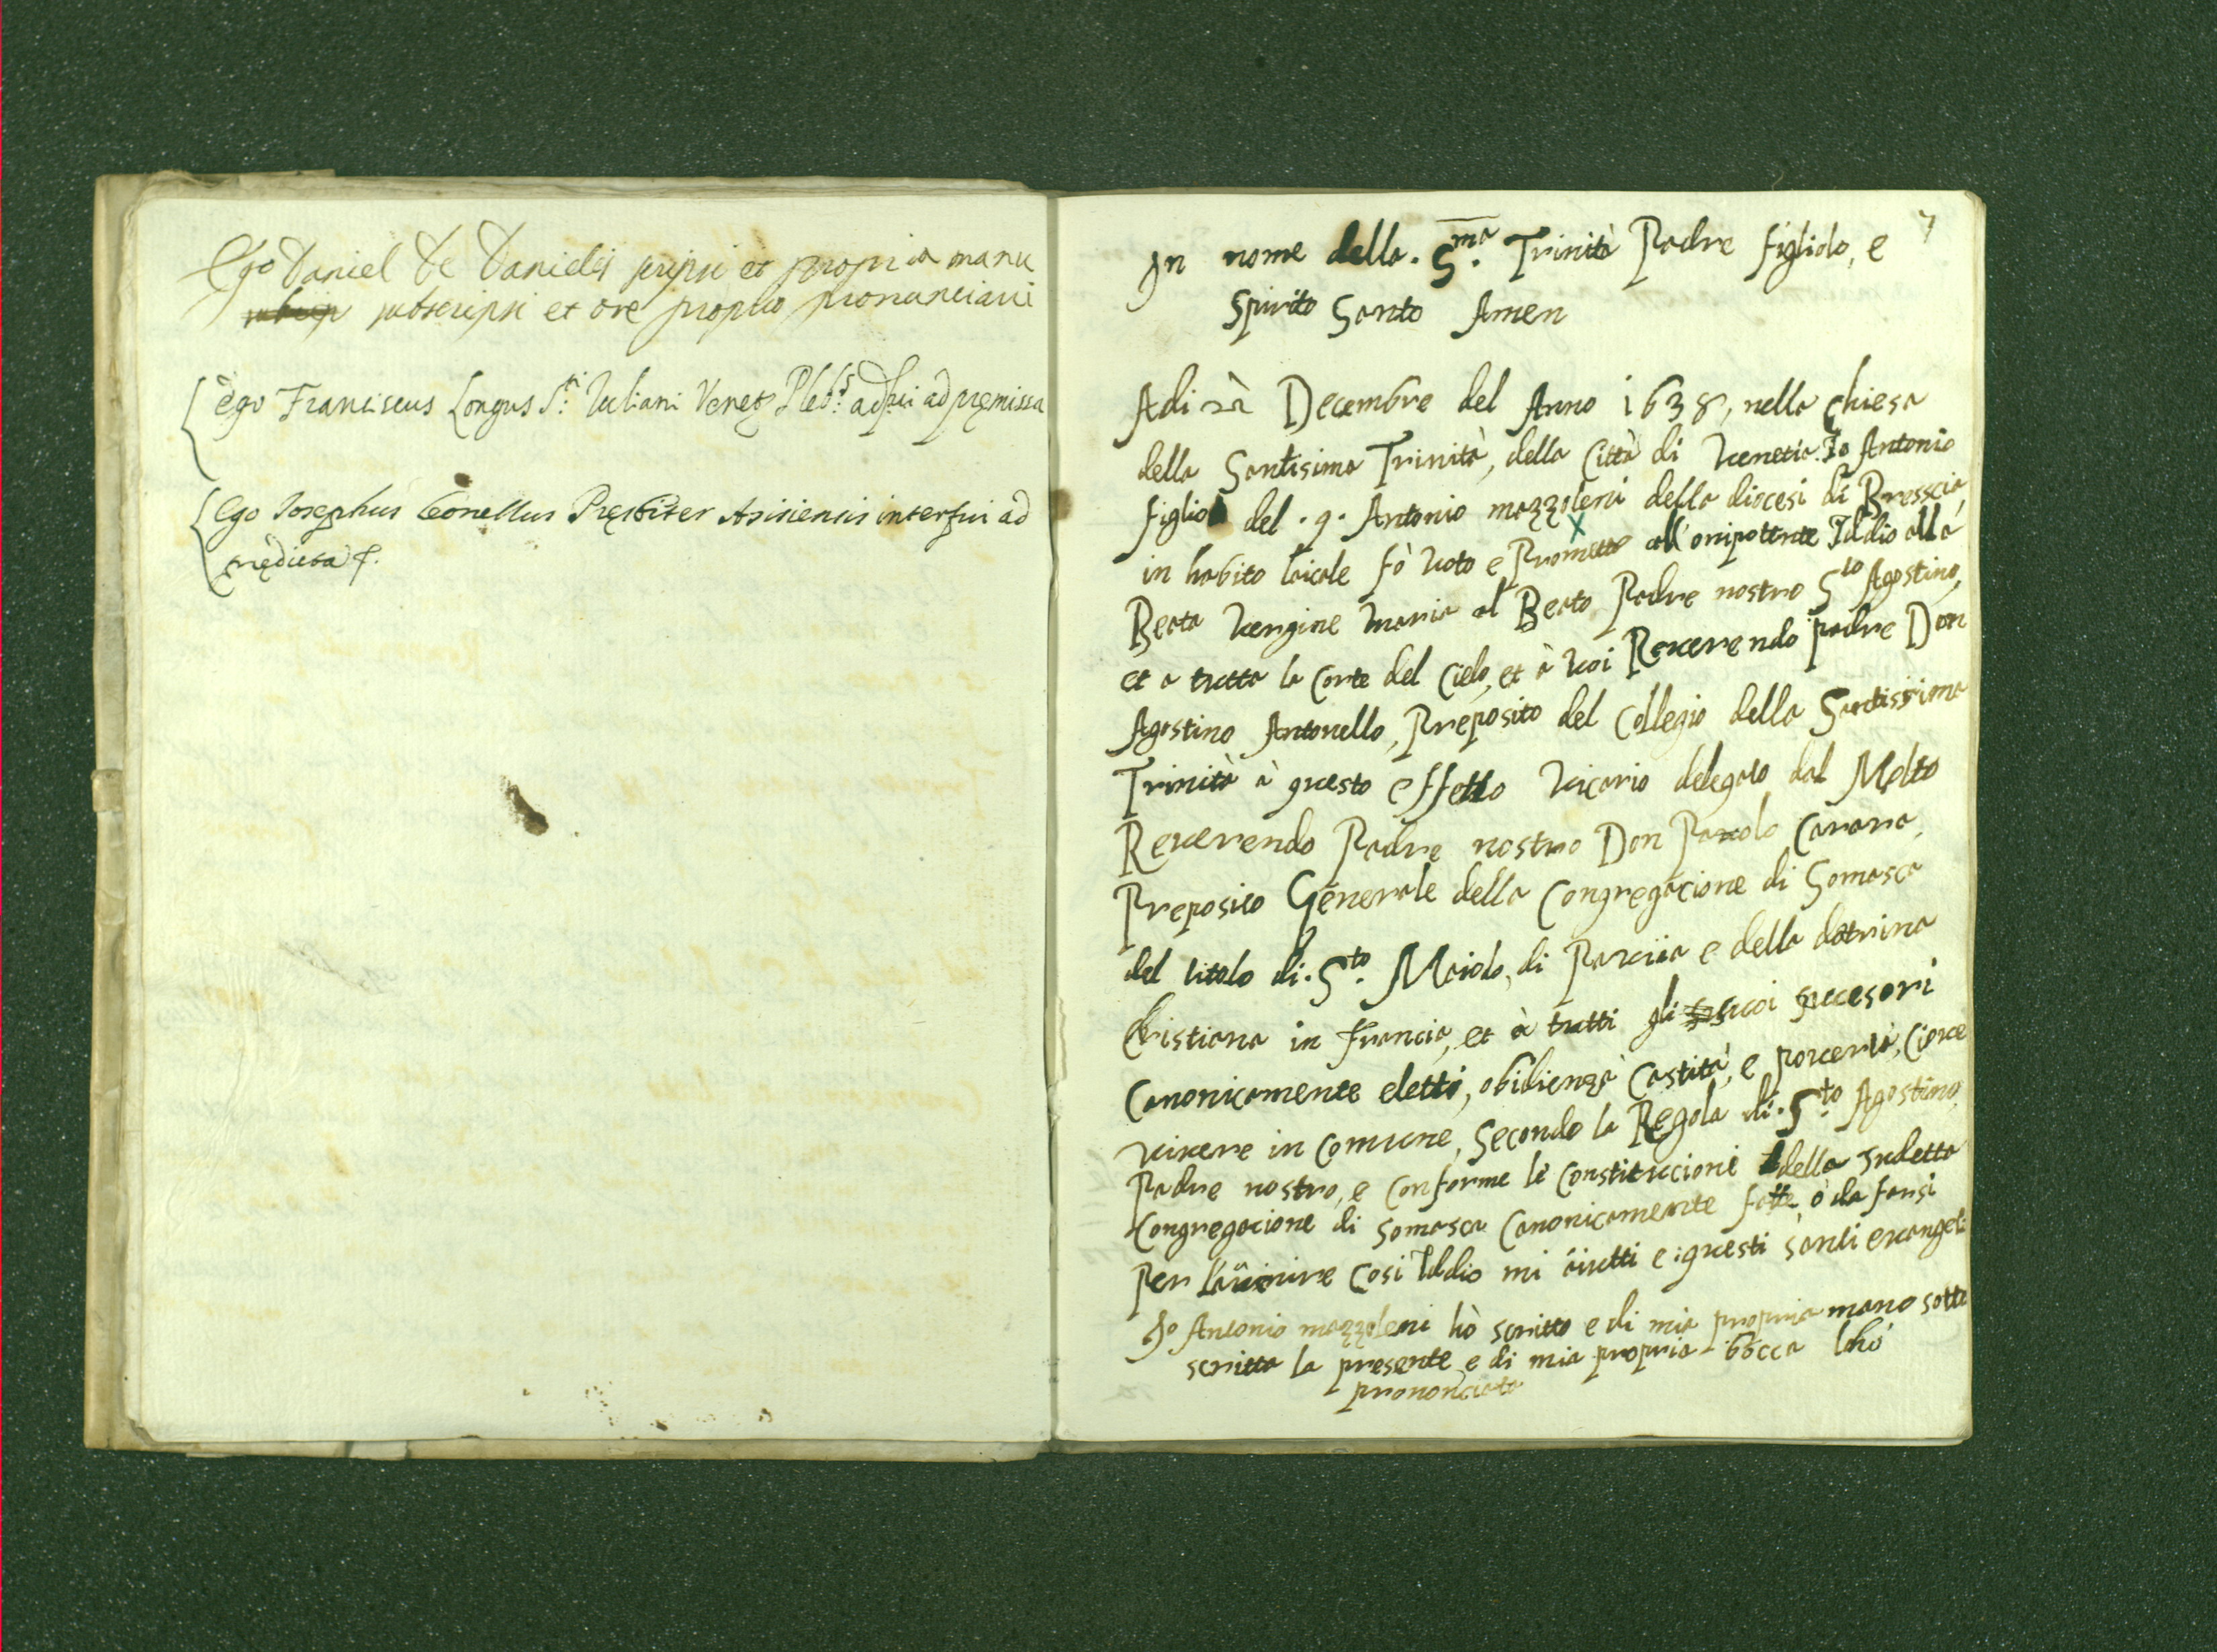 Ego Daniel de Danielis scripsi et propria manu
subscripsi et ore proprio pronunciavi
Ego Franciscus Longus S.ti Iuliani Venet Pleb.s adfui ad premissa
Ego Iosephus Leonellus Presbiter Asisiensis interfui ad
predicta
7
In nome della S.ma Trinità Padre figliolo, e
Spirito Santo Amen
Adi Decembre del Anno 1638, nella chiesa
della Santisima Trinità, della Città di Venetia Io Antonio
figlio del .q. Antonio mazzoleni della diocesi di Bresscia
in habito laicale fò voto e Prometto all'onipotente Iddio alla
Beata Vergine Maria al Beato Padre nostro S.to Agostino,
et a tutta la Corte del Cielo, et à voi Reverendo padre Don
Agostino Antonello, Preposito del Collegio della Santissima
Trinità à questo effetto Vicario delegato dal Molto
Reverendo Padre nostro Don Pauolo Carara,
Preposito Generale della Congregacione di Somasca
del titolo di S.to Maiolo, di Pavia e della dotrina
Christiana in francia, et à tutti gli suoi succesori
Canonicamente eletti, obidienza Castità, e poverta, Cioue
vivere in Comune, Secondo la Regola di S.to Agostino
Padre nostro, e Conforme le Constitucioni della sudetta
Congregacione di Somasca Canonicamente fatte, o da farsi
Per Lauenire Cosi Iddio mi aiutti e questi santi euangeli
Io Antonio mazzoleni hò scritto e di mia propria mano sotto
scritta la presente e di mia propria bocca lahó
prononciata